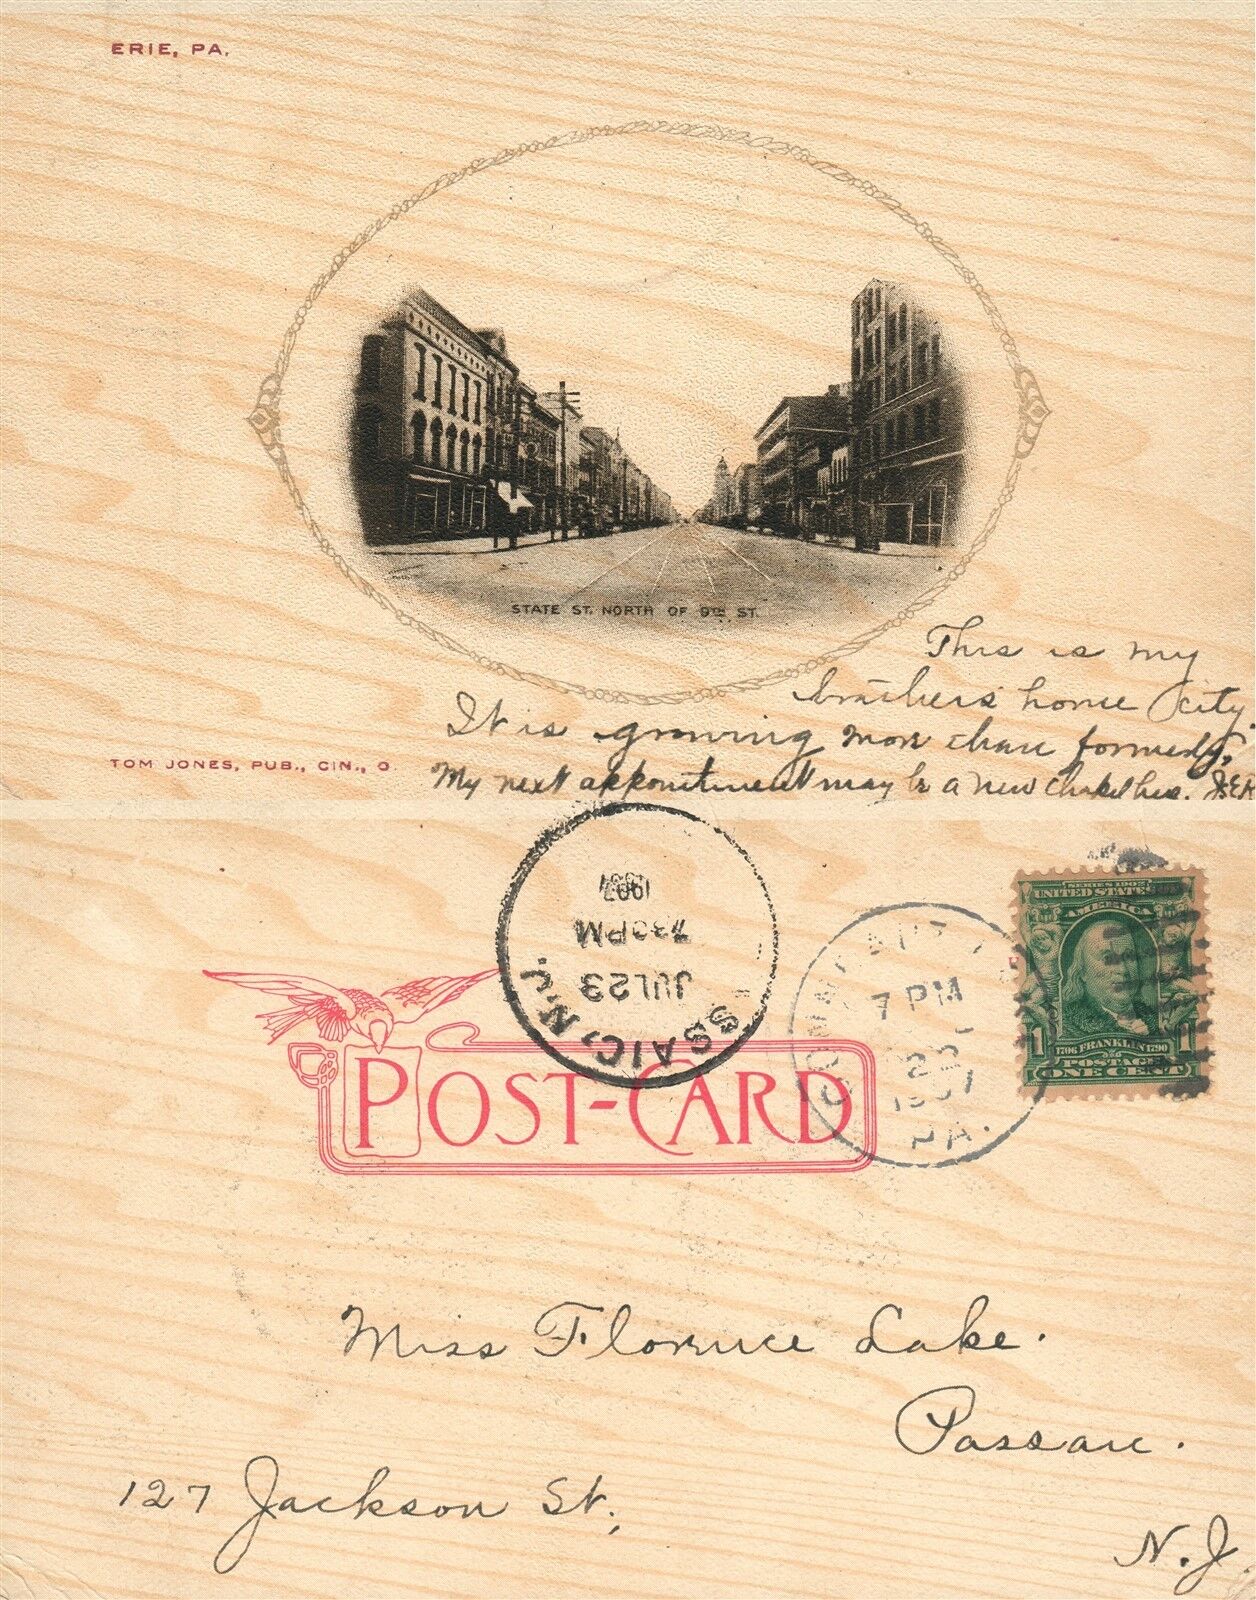 ERIE, PA.
STATE ST. NORTH OF 9TH ST.
This is my
brothers' home city.
It is growing more than formerly.
My next appointment may be a new here. J.E.K
TOM JONES, PUB., CIN., O.
1907
7 30 PM
JUL 23
SSAIC, N.J.
7 PM
22
1907
PA.
SERIES 1902
UNITED STATES
AMERICA
1706 FRANKLIN 1790
POSTAGE
1 ONE CENT 1
POST-CARD
Miss Florence Lake.
Passaic.
127 Jackson St.,
N.J.